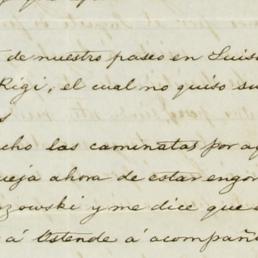 de nuestro paseo en Luis
Rigi, el cual no quiso su
cho las caminatas por a
ueja ahora de estar engor
zowski y me dice que
á Ostende á acompañ